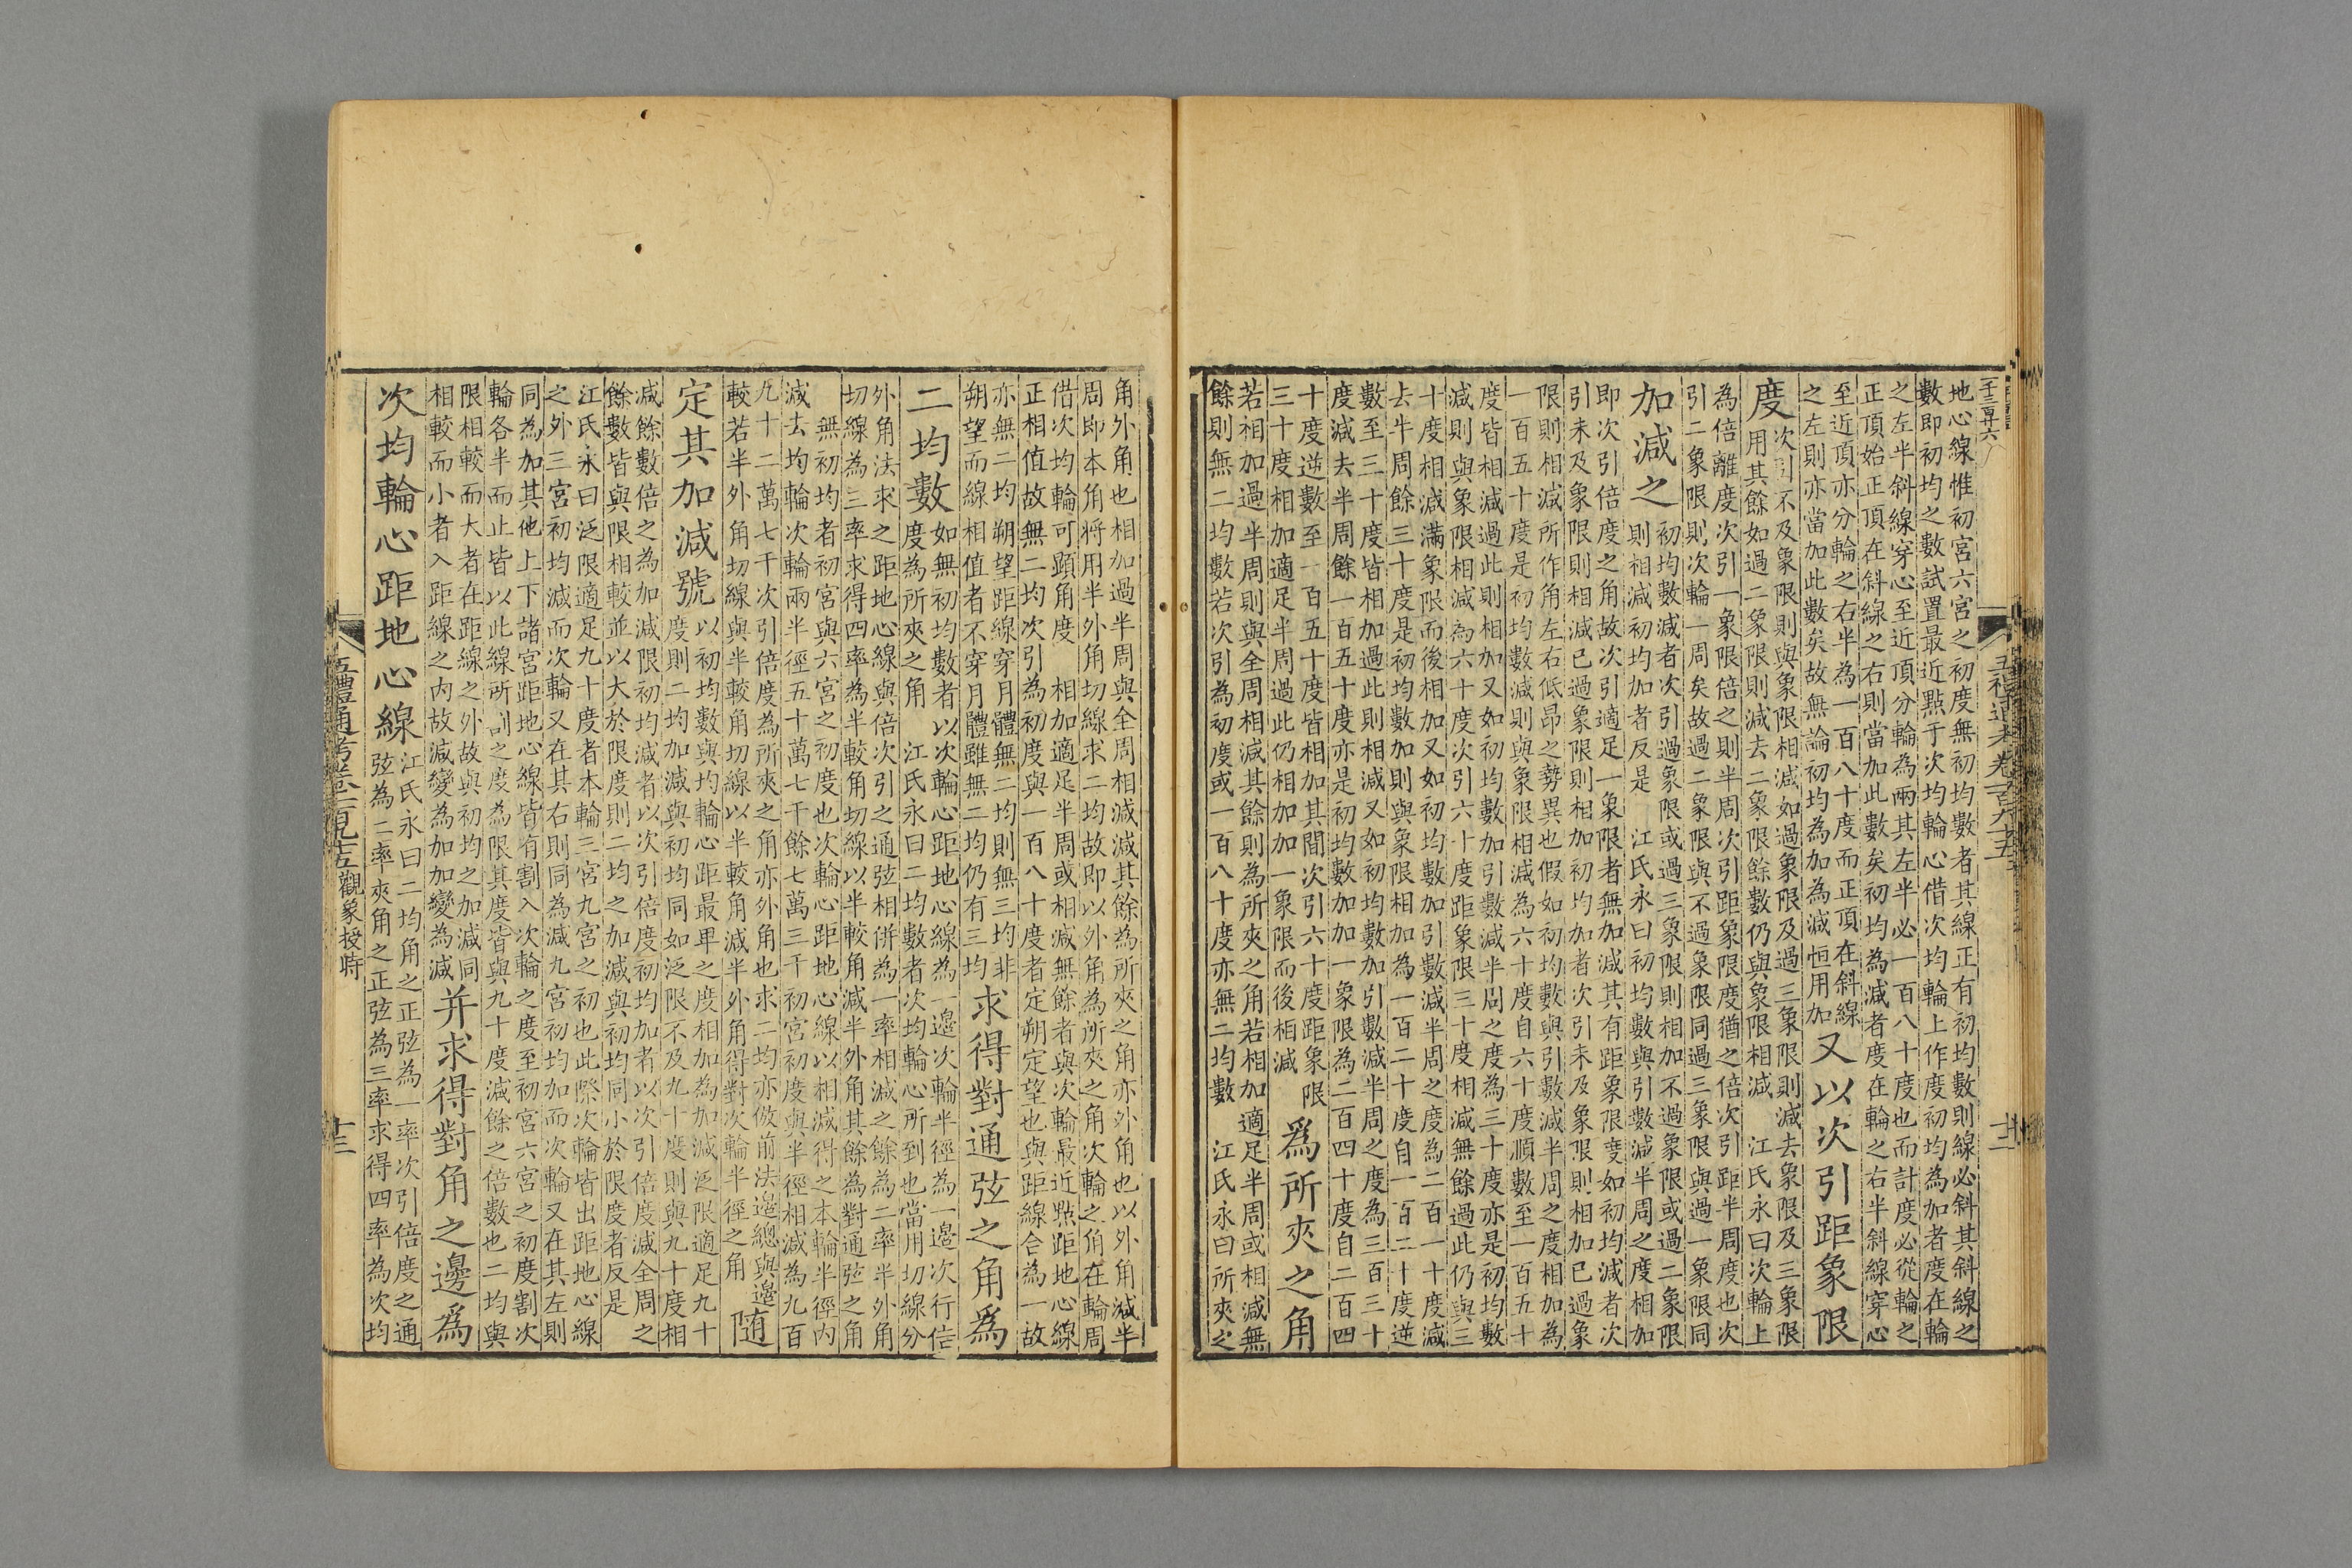 地心線惟初宮六宮之初度無初均數者其線正有初均數則線必斜其斜線之
數即初均之數試置最近點于次均輪心借次均輪上作度初均為加者度在輪
之左半斜線穿心至近頂分輪為兩其左半必一百八十度也而計度必從輪之
正頂始正頂在斜線之右則當加此數矣初均為減者度在輪之右半斜線穿心
至近頂亦分輪之右半為一百八十度而正頂在斜線
之左則亦當加此數矣故無論初均為加為減恒用加
又以次引距象限
度
次引不及象限則與象限相減如過象限及過三象限則減去象限及三象限
用其餘如過二象限則減去二象限餘數仍與象限相減 江氏永曰次輪上
為倍離度次引一象限倍之則半周次引距象限度猶之倍次引距半周度也次
引二象限則次輪一周矣故過二象限與不過象限同過三象限與過一象限同
加減之
初均數減者次引過象限或過三象限則相加不過象限或過二象限
則相減初均加者反是 江氏永曰初均數與引數減半周之度相加
即次引倍度之角故次引適足一象限者無加減其有距象限度如初均減者次
引未及象限則相減已過象限則相加初均加者次引未及象限則相加已過象
限則相減所作角左右低昂之勢異也假如初均數與引數減半周之度相加為
一百五十度是初均數減則與象限相減為六十度自六十度順數至一百五十
度皆相減過此則相加又如初均數加引數減半周之度為三十度亦是初均數
減則與象限相減為六十度次引六十度距象限三十度相減無餘過此仍與三
十度相減滿象限而後相加又如初均數加引數減半周之度為二百一十度減
去半周餘三十度是初均數加則與象限相加為一百二十度自一百二十度逆
數至三十度皆相加過此則相減又如初均數加引數減半周之度為三百三十
度減去半周餘一百五十度亦是初均數加加一象限為二百四十度自二百四
十度逆數至一百五十度皆相加其間次引六十度距象限
三十度相加適足半周過此仍相加加一象限而後相減
為所夾之角
若相加過半周則與全周相減其餘則為所夾之角若相加適足半周或相減無
餘則無二均數若次引為初度或一百八十度亦無二均數 江氏永曰所夾之
角外角也相加過半周與全周相減減其餘為所夾之角亦外角也以外角減半
周即本角將用半外角切線求二均故即以外角為所夾之角次輪之角在輪周
借次均輪可顯角度 相加適足半周或相減無餘者與次輪最近㸃距地心線
正相值故無二均次引為初度與一百八十度者定朔定望也與距線合為一故
亦無二均 朔望距線穿月體無二均則無三均非
朔望而線相值者不穿月體雖無二均仍有三均
求得對通弦之角為
二均數
如無初均數者以次輪心距地心線為一邊次輪半徑為一邊次行倍
度為所夾之角 江氏永曰二均數者次均輪心所到也當用切線分
外角法求之距地心線與倍次引之通弦相併為一率相減之餘為二率半外角
切線為三率求得四率為半較角切線以半較角減半外角其餘為對通弦之角
 無初均者初宮與六宮之初度也次輪心距地心線以相減得之本輪半徑內
減去均輪次輪兩半徑五十萬七千餘七萬三千初宮初度與半徑相減為九百
九十二萬七千次引倍度為所夾之角亦外角也求二均亦倣前法邊總與邊
較若半外角切線與半較角切線以半較角減半外角得對次輪半徑之角
隨
定其加減號
以初均數與均輪心距最卑之度相加為加減泛限適足九十
度則二均加減與初均同如泛限不及九十度則與九十度相
減餘數倍之為加減限初均減者以次引倍度初均加者以次引倍度減全周之
餘數皆與限相較並以大於限度則二均之加減與初均同小於限度者反是
江氏永曰泛限適足九十度者本輪三宮九宮之初也此際次輪皆出距地心線
之外三宮初均減而次輪又在其右則同為減九宮初均加而次輪又在其左則
同為加其他上下諸宮距地心線皆有割入次輪之度至初宮六宮之初度割次
輪各半而止皆以此線所割之度為限其度皆與九十度減餘之倍數也二均與
限相較而大者在距線之外故與初均之加減同
相較而小者入距線之內故減變為加加變為減
并求得對角之邊為
次均輪心距地心線
江氏永曰二均角之正弦為一率次引倍度之通
弦為二率夾角之正弦為三率求得四率為次均
五禮通考卷一百九十五觀象授時
十三